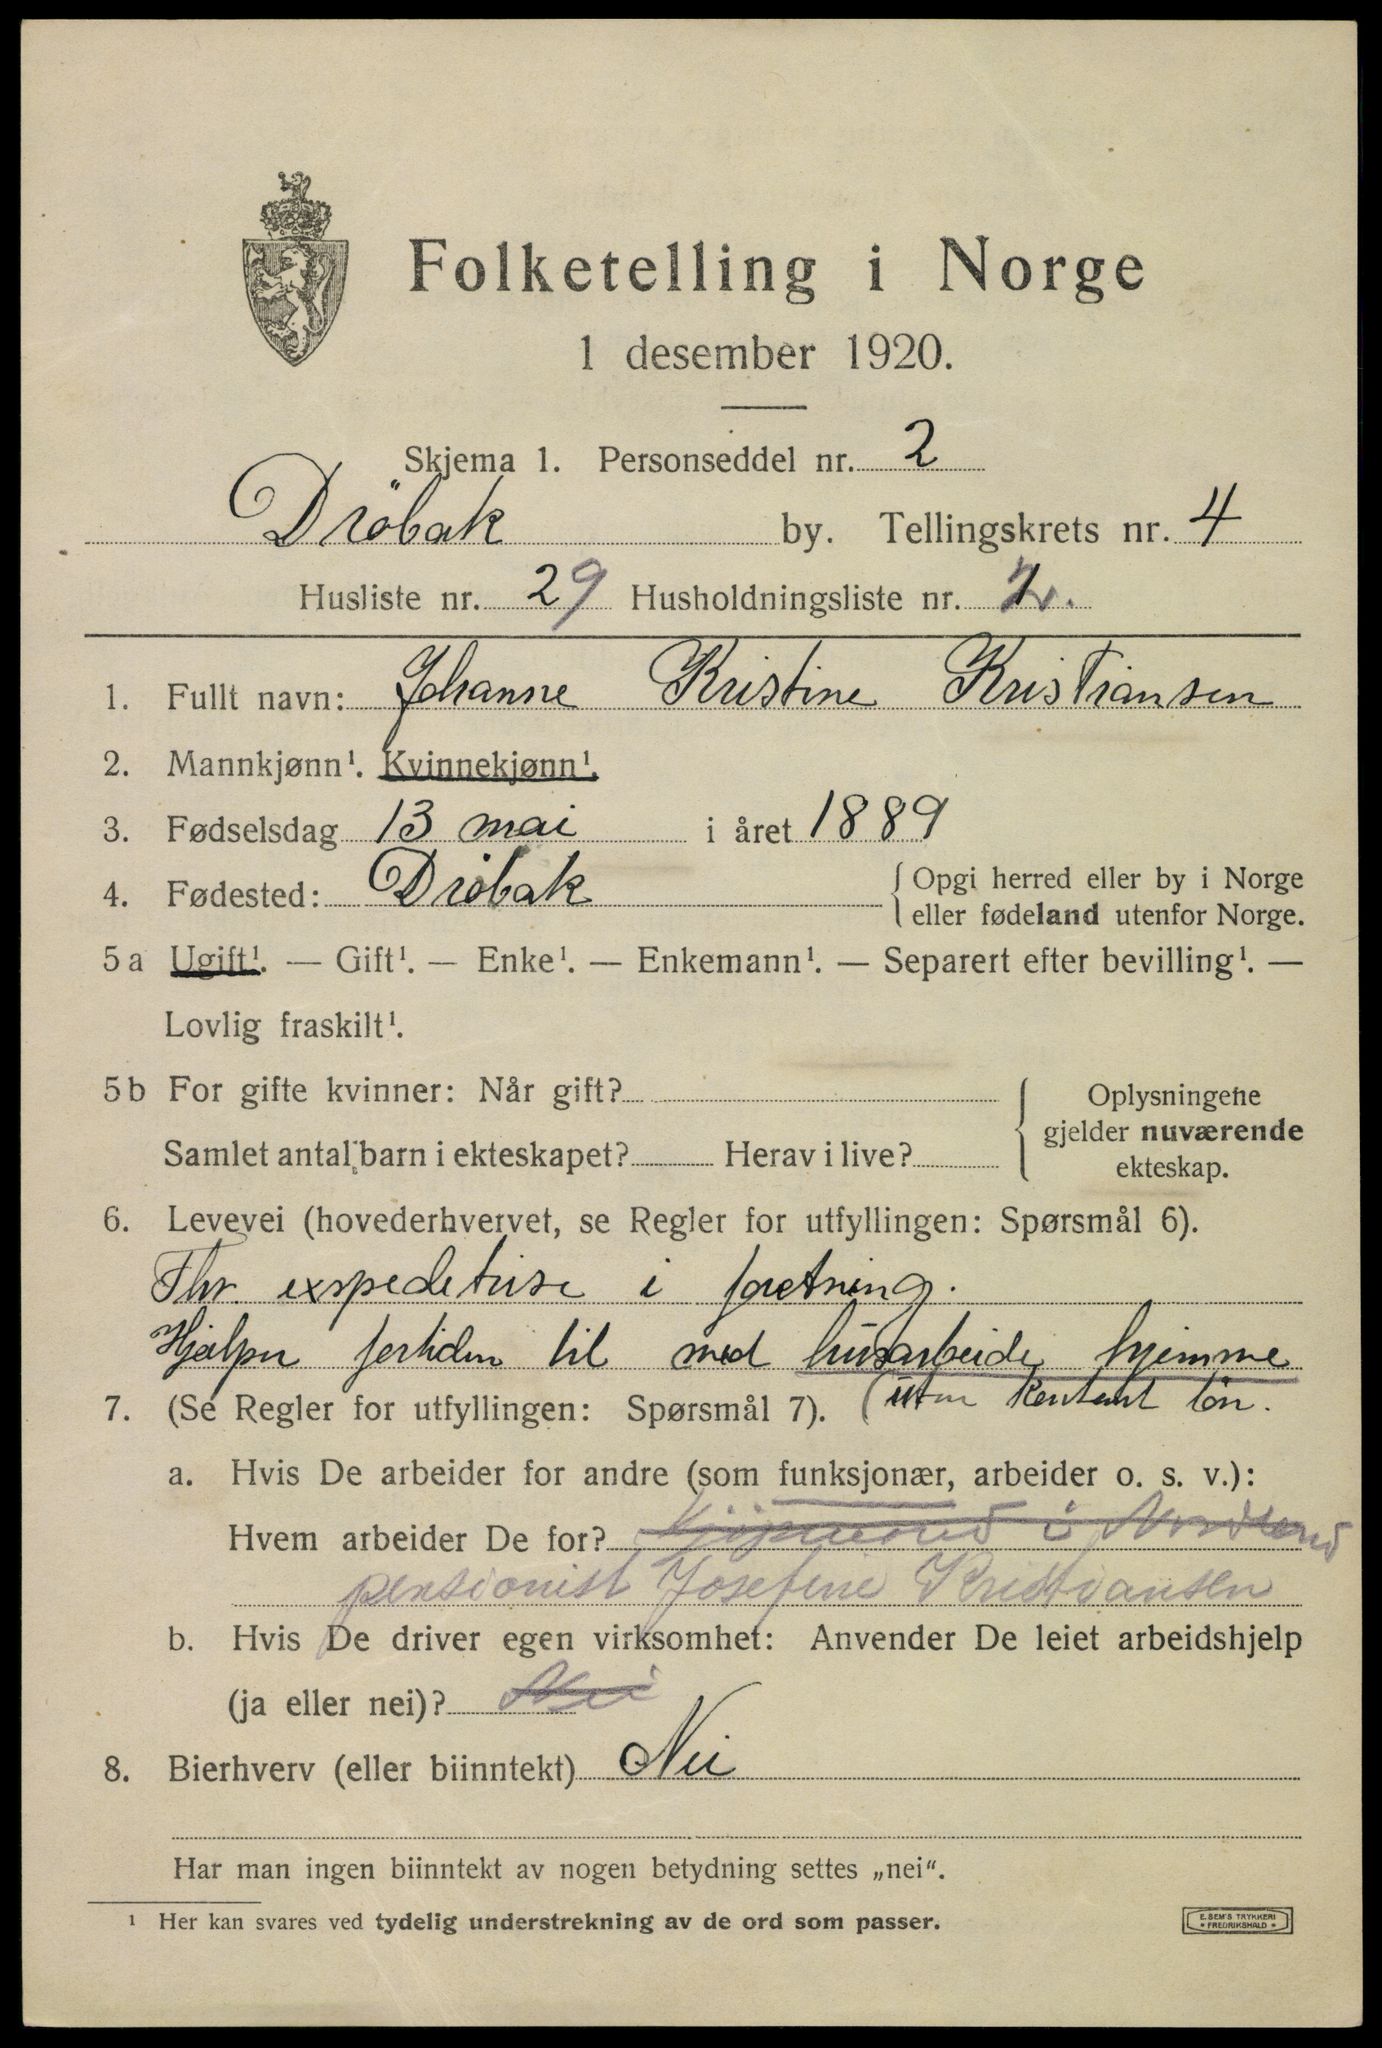 Folketelling i Norge
1 desember 1920.
Skjema 1. Personseddel nr. 2
Dröbak by. Tellingskrets nr. 4
Husliste nr. 29 Husholdningsliste nr.
1. Fullt navn: Johanne Kristine Kristiansen
2. Mannkjønn¹. Kvinnekjønn¹.
3. Fødselsdag 13 mai i året 1889
4. Fødested: Dröbak { Opgi herred eller by i Norge
eller fødeland utenfor Norge.
5a Ugift¹. — Gift¹. — Enke¹. — Enkemann¹. — Separert efter bevilling¹. —
Lovlig fraskilt¹.
5b For gifte kvinner: Når gift?
Samlet antal barn i ekteskapet? Herav i live?
{ Oplysningene
gjelder nuværende
ekteskap.
6. Levevei (hovederhvervet, se Regler for utfyllingen: Spørsmål 6).
exspeditrise i foretning.
Hjælper fortiden til med husarbeide hjemme
7. (Se Regler for utfyllingen: Spørsmål 7). (uten kontant lön.
a. Hvis De arbeider for andre (som funksjonær, arbeider o. s. v.):
Hvem arbeider De for? i
pensionist Josefine Kristiansen
b. Hvis De driver egen virksomhet: Anvender De leiet arbeidshjelp
(ja eller nei)? Nei
8. Bierhverv (eller biinntekt) Nei
Har man ingen biinntekt av nogen betydning settes „nei“.
¹ Her kan svares ved tydelig understrekning av de ord som passer.
E. SEM'S TRYKKERI
* FREDRIKSHALD *